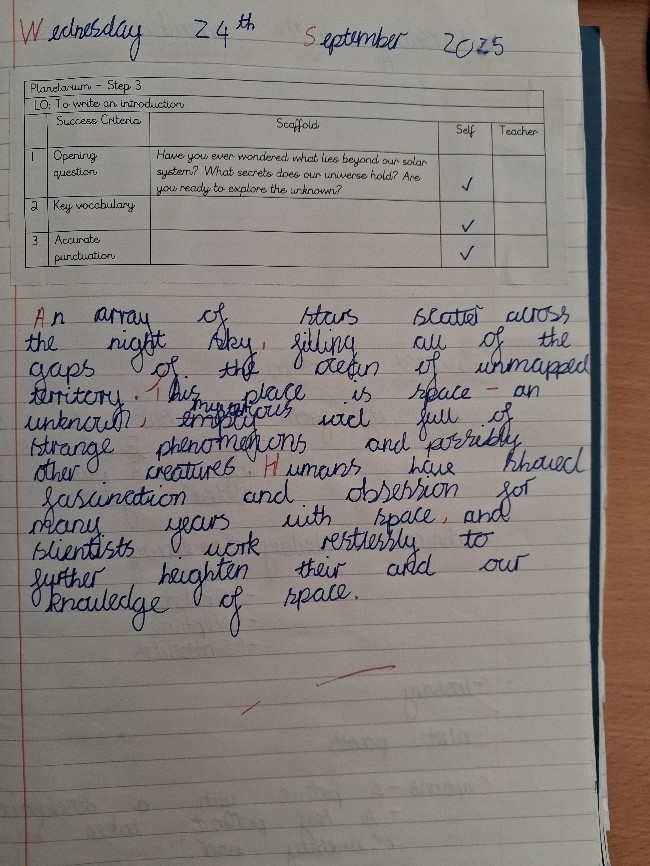 Wednesday 24th September 2025
Planetarium - Step 3
LO: To write an introduction
Success Criteria Scaffold Self Teacher
1 Opening question Have you ever wondered what lies beyond our solar
system? What secrets does our universe hold? Are
you ready to explore the unknown? ✓
2 Key vocabulary ✓
3 Accurate punctuation ✓
An array of stars scatter across
the night sky, filling all of the
gaps of the ocean of unmapped
territory. This place is space - an
mysterious
unknown, empty void full of
strange phenomenons and possibly
other creatures. Humans have showed
fascination and obsession for
many years with space, and
scientists work restlessly to
further heighten their and our
knowledge of space.